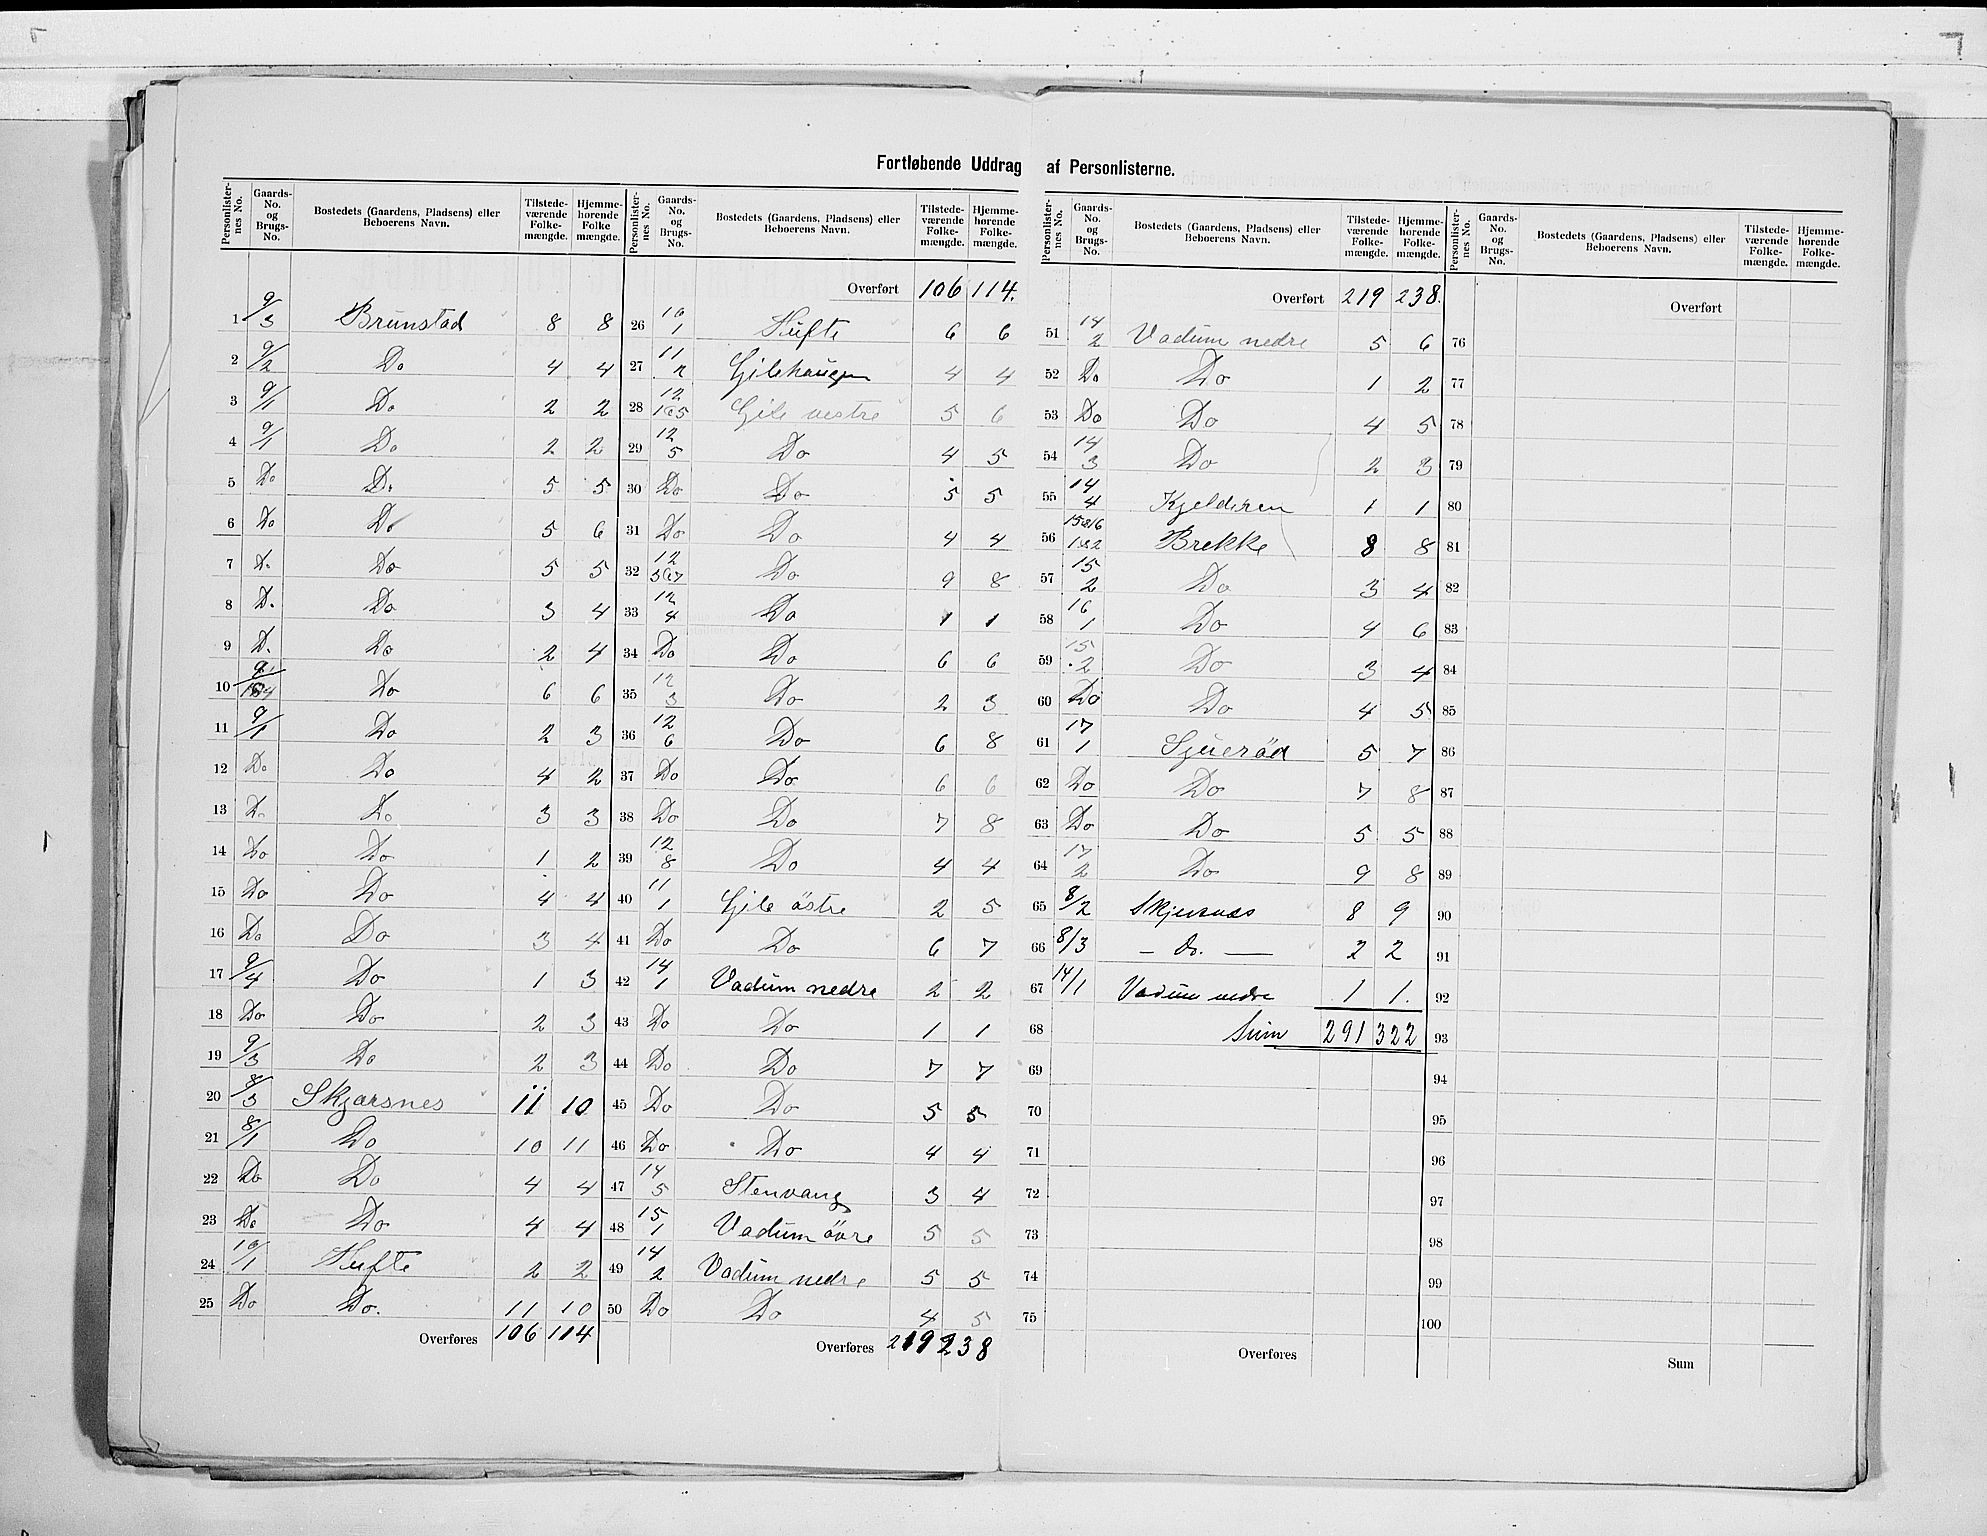 Fortløbende Uddrag af Personlisterne.
Personlisternes No. Gaards-No. og Brugs-No. Bostedets (Gaardens, Pladsens) eller Beboerens Navn. Tilstedeværende Folkemængde. Hjemmehørende Folkemængde.
1 9/3 Brunstad 8 8
2 9/2 Do 4 4
3 9/1 Do 2 2
4 9/1 Do 2 2
5 Do Do 5 5
6 Do Do 5 6
7 Do Do 5 5
8 Do Do 3 4
9 Do Do 2 4
10 9/ Do 6 6
11 9/1 Do 2 3
12 Do Do 4 2
13 Do Do 3 3
14 Do Do 1 2
15 Do Do 4 4
16 Do Do 3 4
17 9/4 Do 1 3
18 Do Do 2 3
19 9/3 Do 2 3
20 8/3 Skjærsnes 11 10
21 8/1 Do 10 11
22 Do Do 4 4
23 Do Do 4 4
24 10/1 Hufte 2 2
25 Do Do. 11 10
Overføres 106 114
Personlisternes No. Gaards-No. og Brugs-No. Bostedets (Gaardens, Pladsens) eller Beboerens Navn. Tilstedeværende Folkemængde. Hjemmehørende Folkemængde.
Overført 106 114.
26 10/1 Hufte 6 6
27 11/2 Gilehaugen 4 4
28 12/1&5 Gile vestre 5 6
29 12/5 Do 4 5
30 Do Do 5 5
31 Do Do 4 4
32 12/3&7 Do 9 8
33 12/4 Do 1 1
34 Do Do 6 6
35 12/3 Do 2 3
36 12/6 Do 6 8
37 Do Do 6 6
38 Do Do 7 8
39 12/8 Do 4 4
40 11/1 Gile östre 2 5
41 Do Do 6 7
42 14/1 Vadum nedre 2 2
43 Do Do 1 1
44 Do Do 7 7
45 Do Do 5 5
46 Do Do 4 4
47 14/5 Stenvang 3 4
48 15/1 Vadum övre 5 5
49 14/2 Vadum nedre 5 5
50 Do Do 4 5
Overføres 219 238
Personlisternes No. Gaards-No. og Brugs-No. Bostedets (Gaardens, Pladsens) eller Beboerens Navn. Tilstedeværende Folkemængde. Hjemmehørende Folkemængde.
Overført 219 238.
51 14/2 Vadum nedre 5 6
52 Do Do 1 2
53 Do Do 4 5
54 14/3 Do 2 3
55 14/4 Kjelderen 1 1
56 15&16/1&2 Brekke 8 8
57 15/2 Do 3 4
58 16/1 Do 4 6
59 15/2 Do 3 4
60 Do Do 4 5
61 17/1 Sjueröd 5 7
62 Do Do 7 8
63 Do Do 5 5
64 17/2 Do 9 8
65 8/2 Skjersnes 8 9
66 8/3 — do. — 2 2
67 14/1 Vadum nedre 1 1.
68 Sum 291 322
69
70
71
72
73
74
75
Overføres
Personlisternes No. Gaards-No. og Brugs-No. Bostedets (Gaardens, Pladsens) eller Beboerens Navn. Tilstedeværende Folkemængde. Hjemmehørende Folkemængde.
Overført
76
77
78
79
80
81
82
83
84
85
86
87
88
89
90
91
92
93
94
95
96
97
98
99
100
Sum